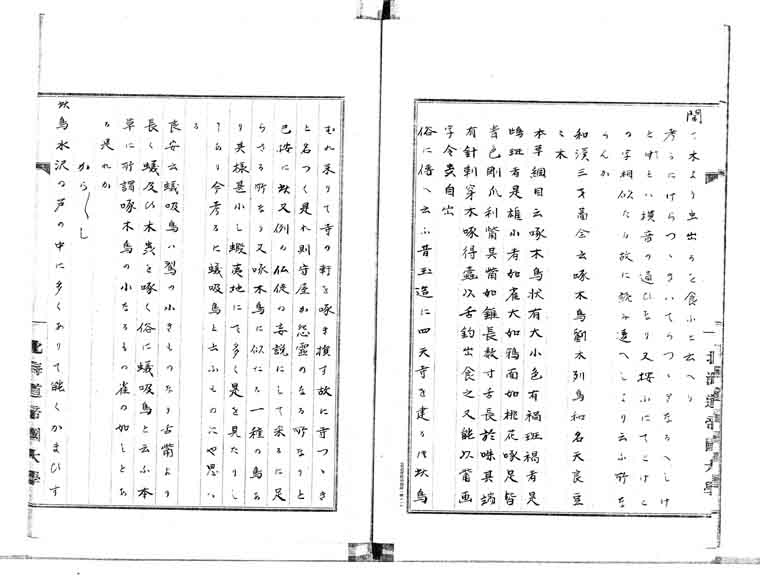 間て木より虫出るを食ふと云へり
考るにけらつゝきハてらつゝきなるへしけ
とてとハ横音の通ひなり又按ふにてこけこ
の字相似たり故に読み違へしより云ふ所な
らんか
和漢三才図会云啄木鳥劉木列鳥和名天良豆
ゝ木
本草綱目云啄木鳥状有大小色有褐斑褐者是
鴎斑者是雄小者如雀大如鴉面如桃花啄足皆
青色剛爪利觜其觜如錐長数寸舌長於咮其端
有針刺穿木啄得蠹以舌鈎出食之又能以觜画
字令虫自出
俗に傳へ云ふ昔玉造に四天寺を建るは此鳥
むれ来りて寺の軒を啄き損す故に寺つゝき
と名つく是れ則守屋か怨霊のなる所なりと
已按に此又例の仏徒の妄説にして采るに足
らさる所なり又啄木鳥に似たる一種の鳥あ
り其様甚小し蝦夷地にて多く是を見たりし
てあり今考るに蟻吸鳥と云ふものにや思ハ
る
良安云蟻吸鳥ハ鴷の小きものなり舌觜より
長く蟻及ひ木虫を啄く俗に蟻吸鳥と云ふ本
草に所謂啄木鳥の小なるもの雀の如しとあ
る是れか
から／＼し
此鳥水沢の芦の中に多くありて能くかまひすし
北海道帝國大學
北海道帝國大學